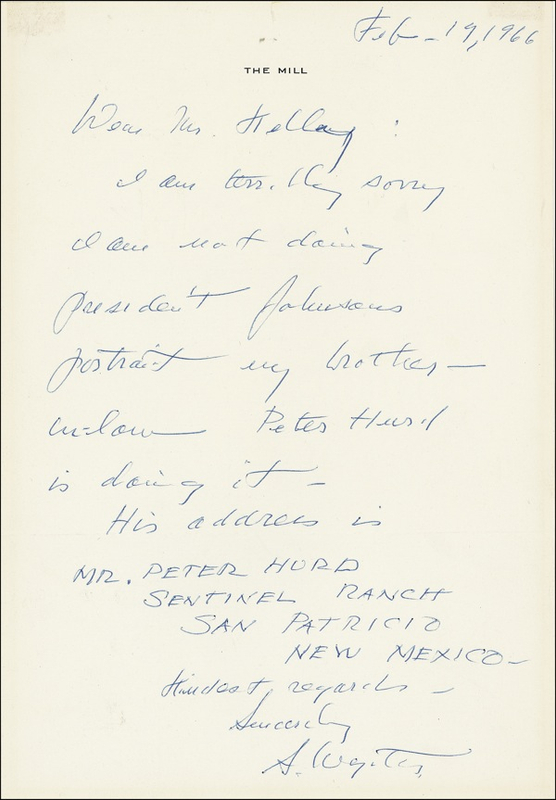 Feb - 19, 1966
THE MILL
Dear Mr. Kellay :
I am terribly sorry
I am not doing
President Johnsons
portrait my brother-
in-law Peter Hurd
is doing it -
His address is
MR. PETER HURD
SENTINEL RANCH
SAN PATRICIO
NEW MEXICO-
Kindest regards -
Sincerely
A. Wyeth